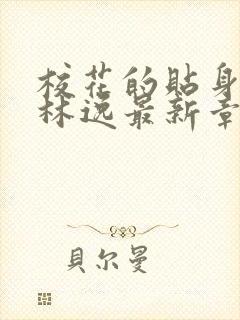 校花的貼身
林逸最新章
貝尔曼